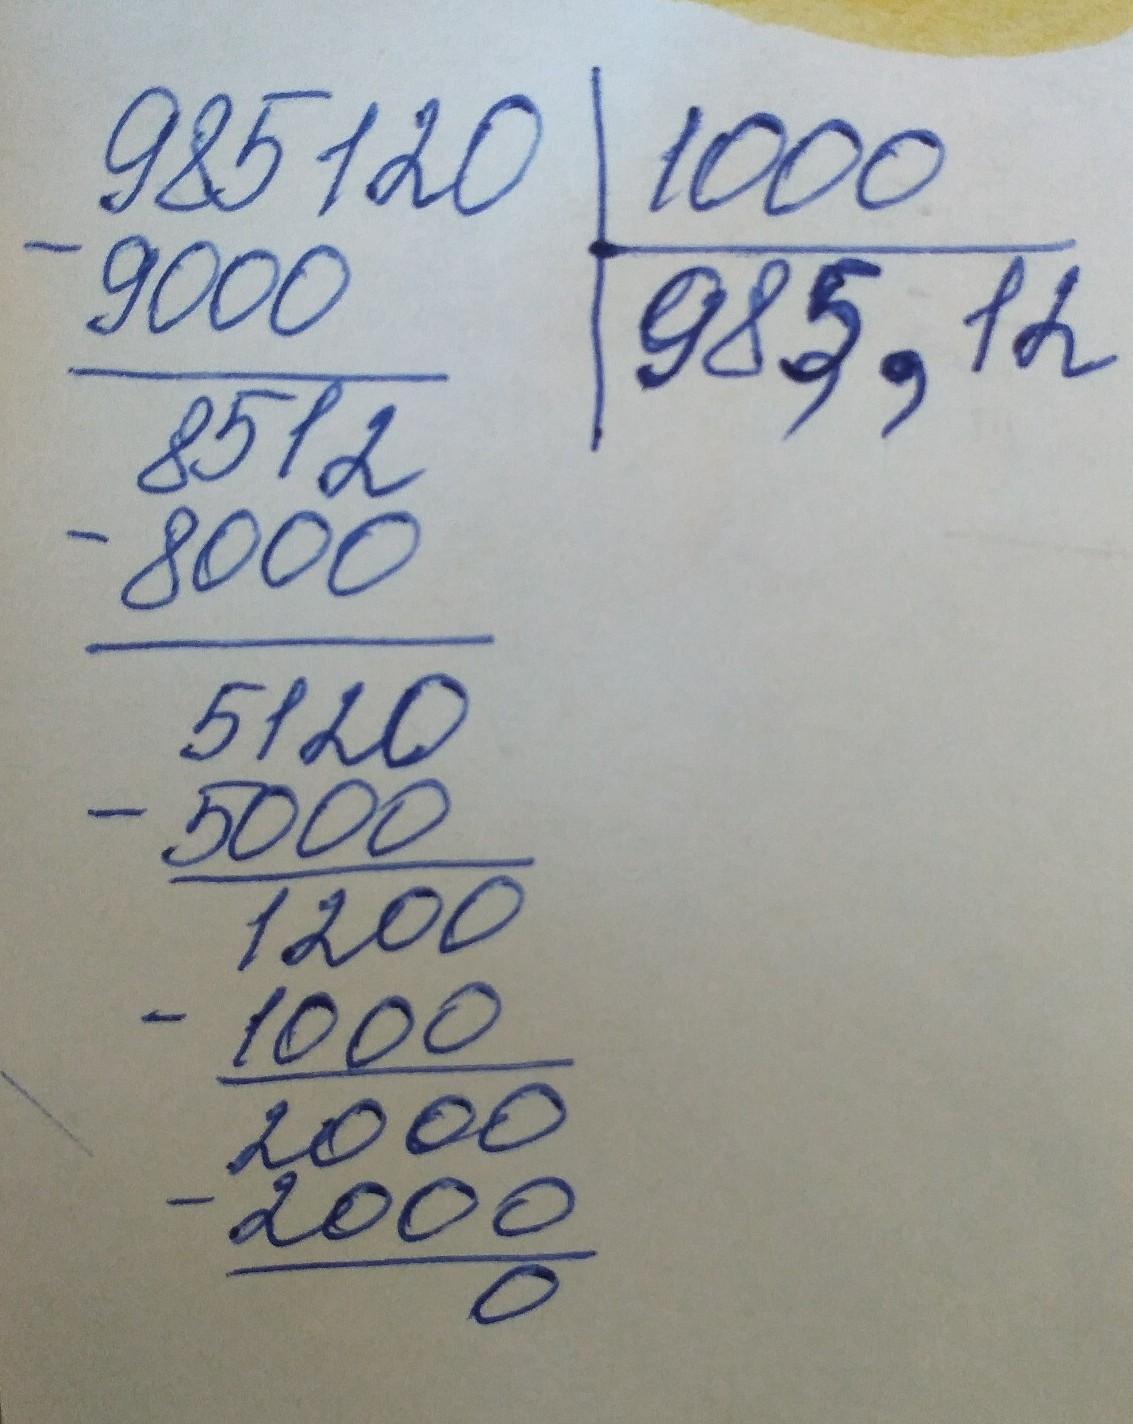 985120 1000
- 9000 985, 12
8512
- 8000
5120
- 5000
1200
- 1000
2000
- 2000
0